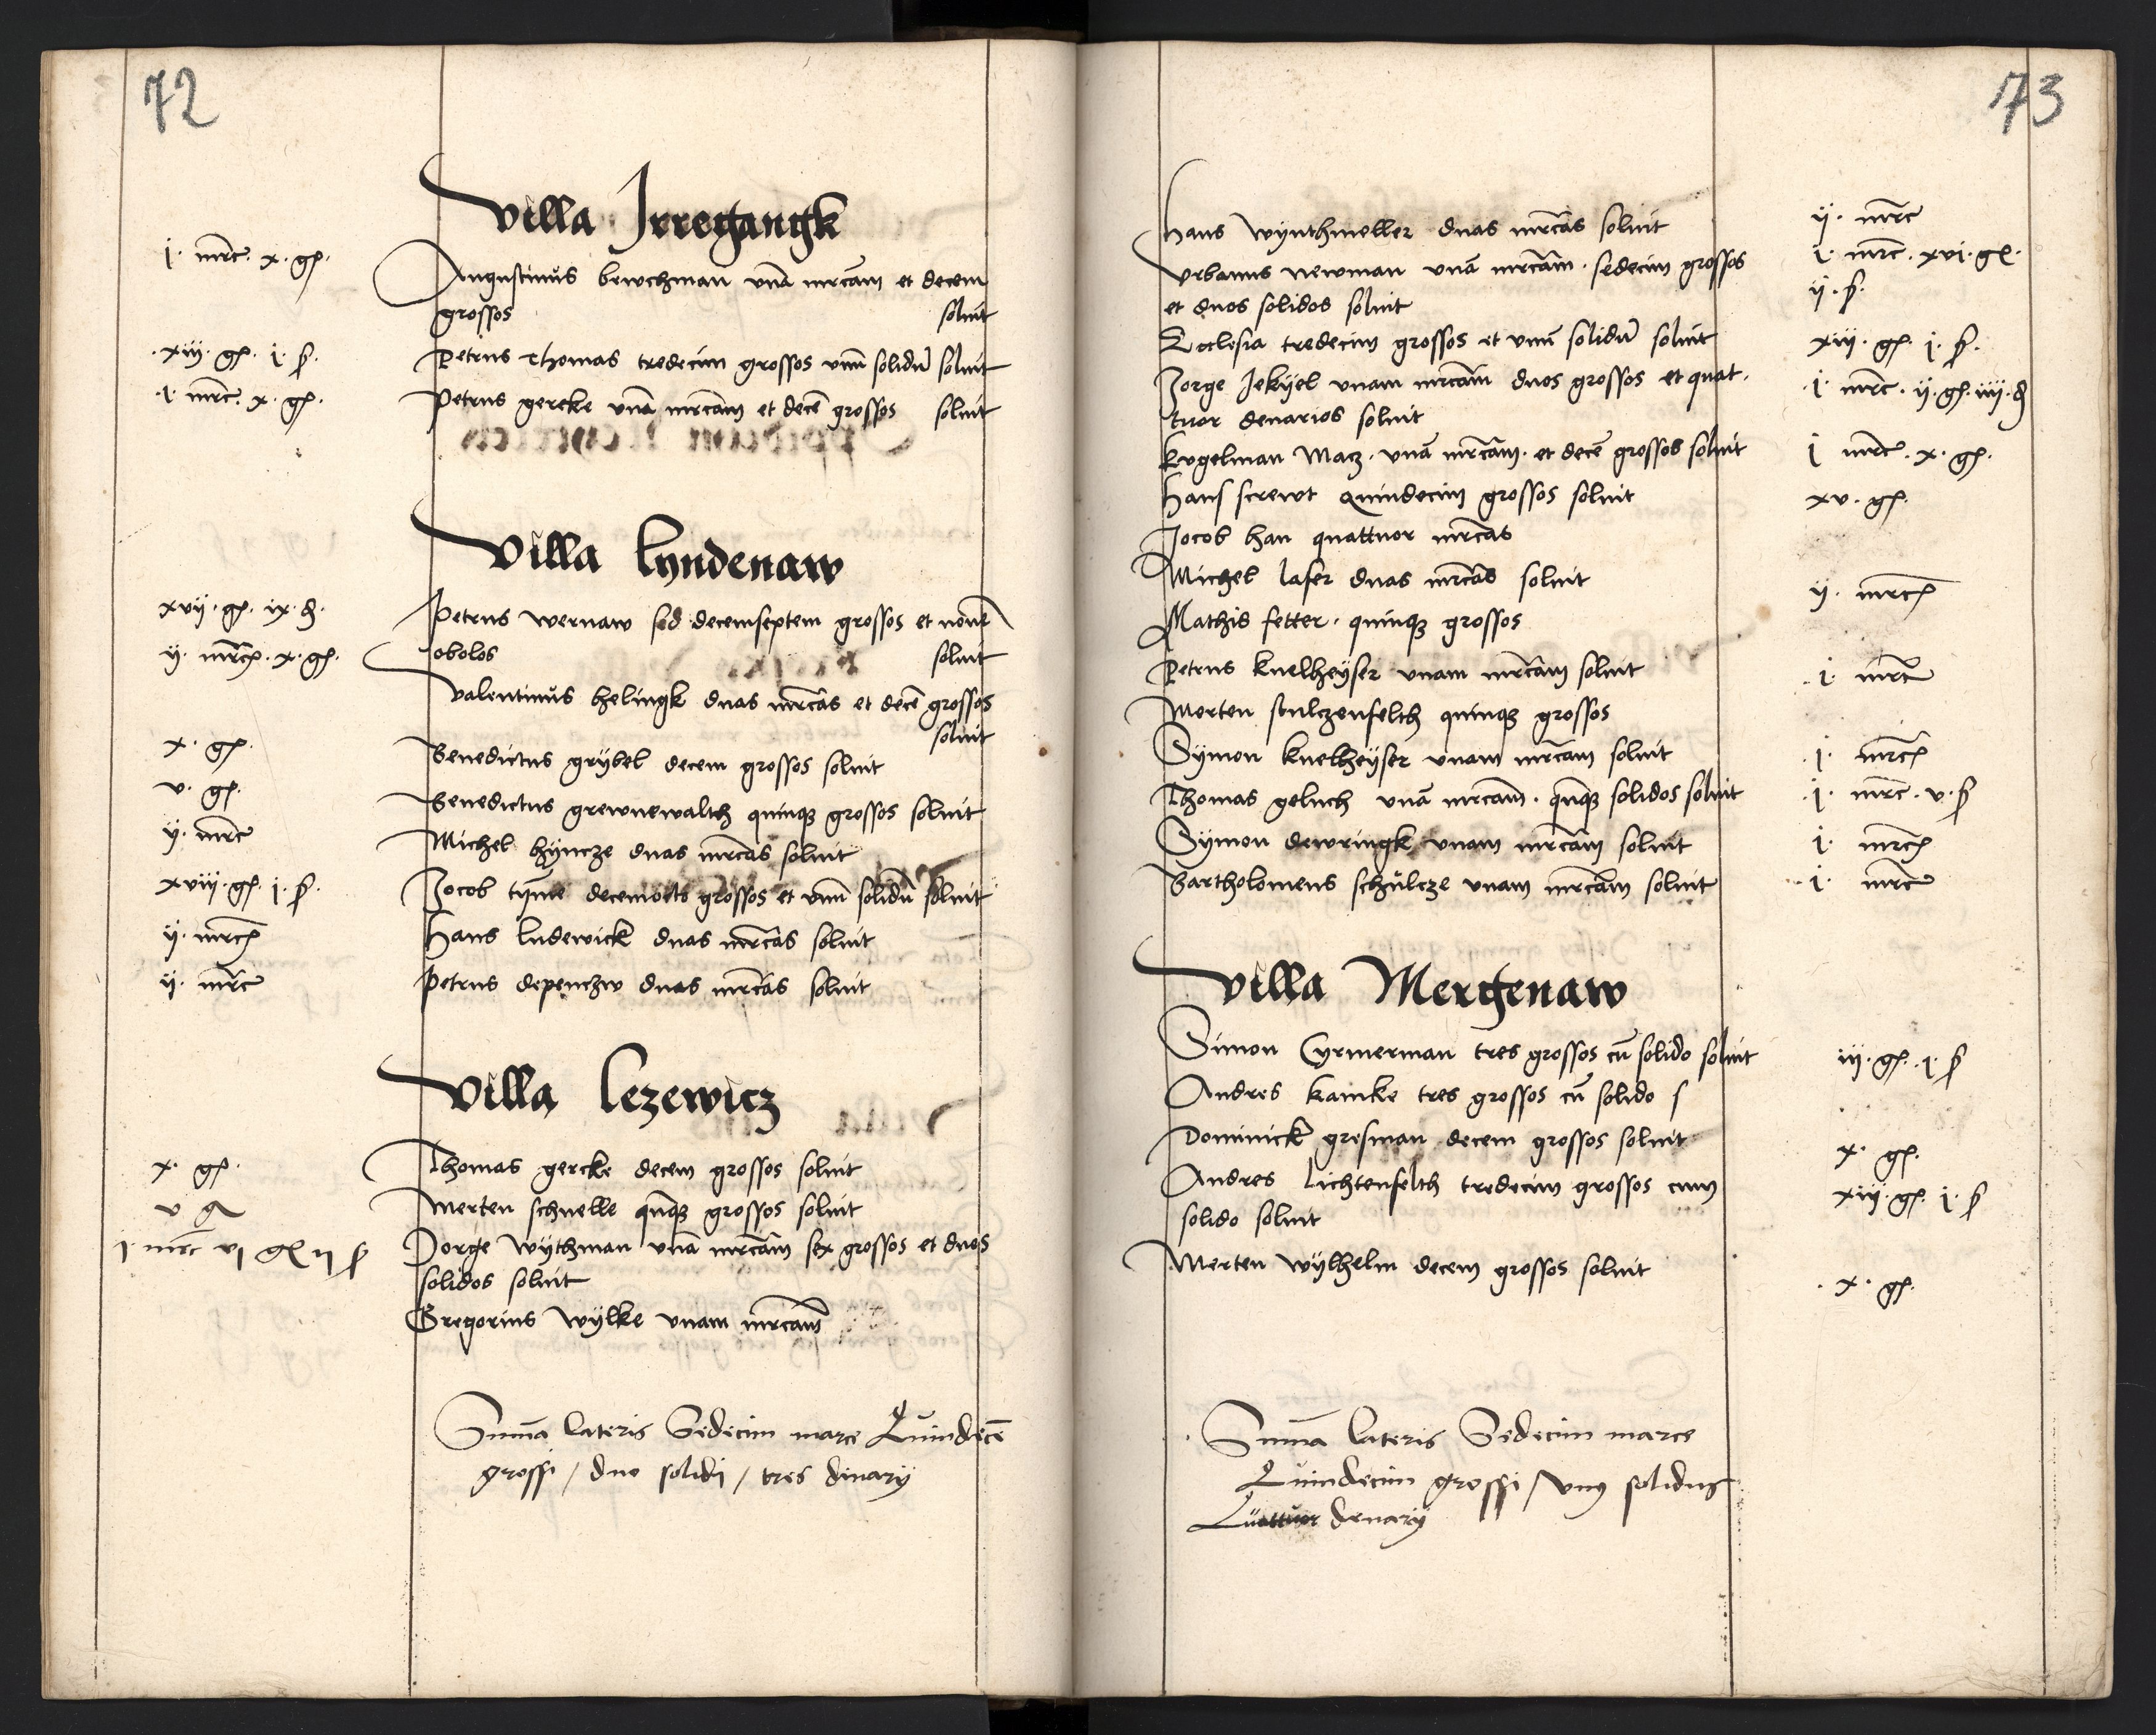 72
Villa Irregangk
j. mrc. x. gs.
Augustinus brwchman vnã mrcam et decem
grossos soluit
xiij. gs. j. s. Petrus Thomas tredecim grossos vnũ solidũ soluit
j. mrc. x. gs. Petrus gereke vnã mrcam et decẽ grossos soluit
Villa lyndenaw
xvij. gs. ix. d. Petrus wernaw sed decemseptem grossos et nouẽ
obolos soluit
ij. mrcs. x. gs. Valentinus helingk duas mrcas et decẽ grossos
soluit
x. gs. Benedictus grybel decem grossos soluit
v. gs. Benedictus grewnewalth quinqz grossos soluit
ij. mrc Michel hÿncze duas mrcas soluit
xviij. gs. j. s. Jocob tÿme decemocto grossos et vnũ solidũ soluit
ij. mrcs Hans ludewick duas mrcas soluit
ij. mrc Petrus depenczw duas mrcas soluit
Villa lezewicz
x. gs. Thomas gercke decem grossos soluit
v g Merten schnelle quĩqz grossos soluit
j mrc vj gs ij s Jorge wÿthman vnã mrcam sex grossos et duos
solidos soluit
Gregorius wÿlke vnam mrcam
Sum̃a lateris Sedecim marce Quindecẽ
grossi / duo solidi / tres dinarij
73
Hans wynthmeller duas mrcas soluit ij. mrc
Vrbanus newman vnã mrcam. sedecim grossos j. mrc. xvi. gs.
et duos solidos soluit ij. s.
Ecclesia tredecim grossos et vnũ solidũ soluit xiij. gs. j. s.
Jorge Jekÿel vnam mrcam duos grossos et quat. j. mrc. ij. gs. iiij. d
tuor denarios soluit
Kvgelman Macz. vnã mrcam. et decẽ grossos soluit j mrc. x. gs.
Hans screwt Quindecim grossos soluit xv. gs.
Jocob han quattuor mrcas
Michel laser duas mrcas soluit ij. mrcs
Mathis fetter. quinqz grossos
Petrus knelheÿser vnam mrcam soluit j. mrc
Merten sculczenfelth quinqz grossos
Symon knelheÿser vnam mrcam soluit j. mrcs
Thomas geluch vnã mrcam. quĩqz solidos soluit j. mrc. v. s
Symon dewringk vnam mrcam soluit j. mrcs
Bartholomeus schulcze vnam mrcam soluit j. mrc
Villa Mergenaw
Simon Cyrmerman tres grossos cũ solido soluit iij. gs. j. s
Andres kamke tres grossos cũ solido s
Dominick gresman decem grossos soluit x. gs.
Andres Lichtenfelth tredecim grossos cum xiij. gs. j. s
solido soluit
Merten wÿlhelm decem grossos soluit x. gs.
Sum̃a lateris Sedecim marce
Quindecim grossi / vnus solidus
Quattuor denarij